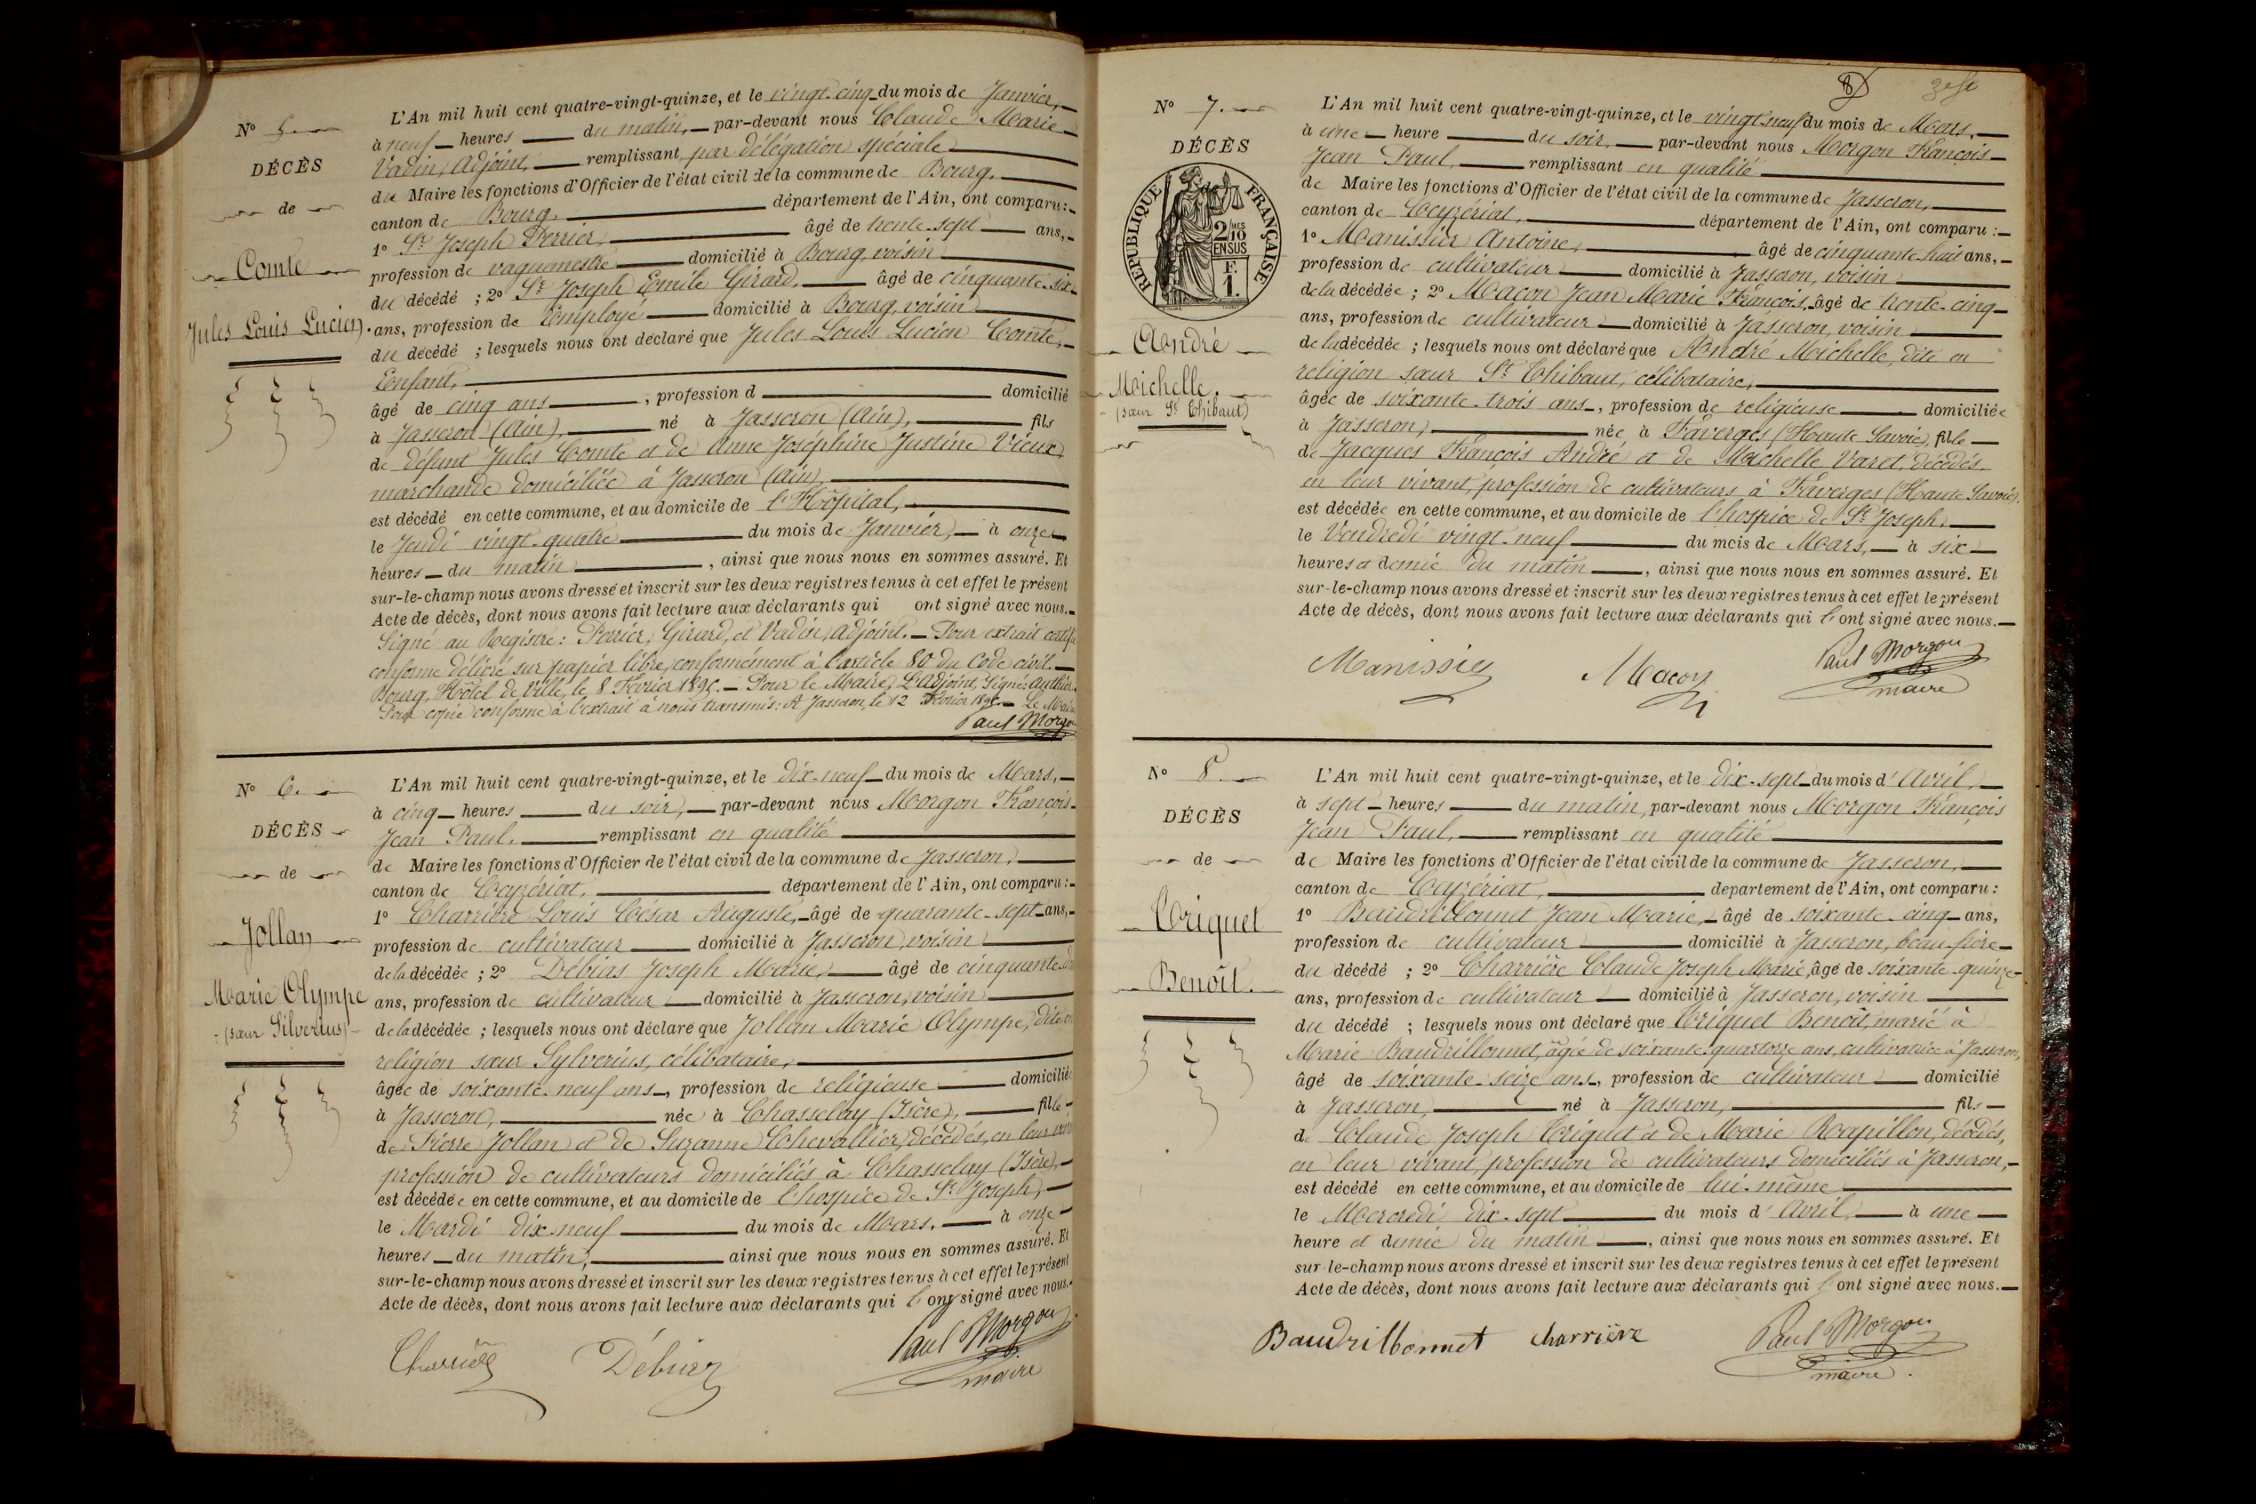 N° 5.
DÉCÈS
de
Comte
Jules Louis Lucien.
L'An mil huit cent quatre-vingt-quinze, et le vingt-cinq du mois de Janvier,
à neuf heures du matin, par-devant nous Claude Marie
Vadin, Adjoint, remplissant par délégation spéciale
du Maire les fonctions d'Officier de l'état civil de la commune de Bourg,
canton de Bourg, département de l'Ain, ont comparu :
1° Sr Joseph Perrier, âgé de trente-sept ans,
profession de vaguemestre domicilié à Bourg, voisin
du décédé ; 2° Sr Joseph Emile Girard, âgé de cinquante-six
ans, profession de Employé domicilié à Bourg, voisin
du décédé ; lesquels nous ont déclaré que Jules Louis Lucien Comte,
Enfant,
âgé de cinq ans, profession d domicilié
à Jasseron (Ain), né à Jasseron (Ain), fils
de défunt Jules Comte et de Anne Joséphine Justine Vieux,
marchande domiciliée à Jasseron (Ain),
est décédé en cette commune, et au domicile de l'Hôpital,
le Jeudi vingt-quatre du mois de Janvier, à onze
heures du matin, ainsi que nous nous en sommes assuré. Et
sur-le-champ nous avons dressé et inscrit sur les deux registres tenus à cet effet le présent
Acte de décès, dont nous avons fait lecture aux déclarants qui ont signé avec nous.
Signé au Registre : Perrier, Girard, et Vadin, adjoint. Pour extrait certifié
conforme délivré sur papier libre, conformément à l'article 80 du Code civil.
Bourg, Hôtel de Ville, le 8 Février 1895. Pour le Maire, L'Adjoint, Signé:
Pour copie conforme à l'extrait à nous transmis : A Jasseron, le 12 Février 1895. Le Maire
Paul Morgon
N° 6.
DÉCÈS
de
Jollan
Marie Olympe
(sœur Silverius)
L'An mil huit cent quatre-vingt-quinze, et le dix-neuf du mois de Mars,
à cinq heures du soir, par-devant nous Morgon François
Jean Paul, remplissant en qualité
de Maire les fonctions d'Officier de l'état civil de la commune de Jasseron,
canton de Ceyzériat, département de l'Ain, ont comparu :
1° Charrière Louis César Auguste, âgé de quarante-sept ans,
profession de cultivateur domicilié à Jasseron, voisin
de la décédée ; 2° Débias Joseph Marie, âgé de cinquante
ans, profession de cultivateur domicilié à Jasseron, voisin
de la décédée ; lesquels nous ont déclaré que Jollan Marie Olympe, dite en
religion sœur Sylverius, célibataire,
âgée de soixante-neuf ans, profession de religieuse domiciliée
à Jasseron, née à Chasselay (Isère), fille
de Pierre Jollan et de Suzanne Chevallier, décédés, en leur vivant
profession de cultivateurs domiciliés à Chasselay (Isère),
est décédée en cette commune, et au domicile de l'hospice de St Joseph,
le Mardi dix-neuf du mois de Mars, à onze
heures du matin, ainsi que nous nous en sommes assuré. Et
sur-le-champ nous avons dressé et inscrit sur les deux registres tenus à cet effet le présent
Acte de décès, dont nous avons fait lecture aux déclarants qui l'ont signé avec nous.
Charrière Débias Paul Morgon
maire
8
N° 7.
DÉCÈS
RÉPUBLIQUE FRANÇAISE
2/10 MES
EN SUS
F.
1.
André
Michelle.
(sœur St Thibaut)
L'An mil huit cent quatre-vingt-quinze, et le vingt-neuf du mois de Mars,
à une heure du soir, par-devant nous Morgon François
Jean Paul, remplissant en qualité
de Maire les fonctions d'Officier de l'état civil de la commune de Jasseron,
canton de Ceyzériat, département de l'Ain, ont comparu :
1° Manissier Antoine, âgé de cinquante-huit ans,
profession de cultivateur domicilié à Jasseron, voisin
de la décédée ; 2° Macon Jean Marie François, âgé de trente-cinq
ans, profession de cultivateur domicilié à Jasseron, voisin
de la décédée ; lesquels nous ont déclaré que André Michelle, dite en
religion sœur St Thibaut, célibataire,
âgée de soixante-trois ans, profession de religieuse domiciliée
à Jasseron, née à Faverges (Haute Savoie), fille
de Jacques François André et de Michelle Varet, décédés
en leur vivant, profession de cultivateurs à Faverges (Haute Savoie),
est décédée en cette commune, et au domicile de l'hospice de St Joseph,
le Vendredi vingt-neuf du mois de Mars, à six
heures et demie du matin, ainsi que nous nous en sommes assuré. Et
sur-le-champ nous avons dressé et inscrit sur les deux registres tenus à cet effet le présent
Acte de décès, dont nous avons fait lecture aux déclarants qui l'ont signé avec nous.
Manissier Macon Paul Morgon
maire
N° 8.
DÉCÈS
de
Criquet
Benoît.
L'An mil huit cent quatre-vingt-quinze, et le dix-sept du mois d'Avril,
à sept heures du matin, par-devant nous Morgon François
Jean Paul, remplissant en qualité
de Maire les fonctions d'Officier de l'état civil de la commune de Jasseron,
canton de Ceyzériat, département de l'Ain, ont comparu :
1° Baudrillonnet Jean Marie, âgé de soixante-cinq ans,
profession de cultivateur domicilié à Jasseron, beau-frère
du décédé ; 2° Charrière Claude Joseph Marie, âgé de soixante-quinze
ans, profession de cultivateur domicilié à Jasseron, voisin
du décédé ; lesquels nous ont déclaré que Criquet Benoît, marié à
Marie Baudrillonnet, âgée de soixante-quatorze ans, cultivatrice à Jasseron,
âgé de soixante-seize ans, profession de cultivateur domicilié
à Jasseron, né à Jasseron, fils
de Claude Joseph Criquet et de Marie Rapillon, décédés,
en leur vivant, profession de cultivateurs domiciliés à Jasseron,
est décédé en cette commune, et au domicile de lui-même
le Mercredi dix-sept du mois d'Avril, à une
heure et demie du matin, ainsi que nous nous en sommes assuré. Et
sur-le-champ nous avons dressé et inscrit sur les deux registres tenus à cet effet le présent
Acte de décès, dont nous avons fait lecture aux déclarants qui l'ont signé avec nous.
Baudrillonnet Charrière Paul Morgon
maire